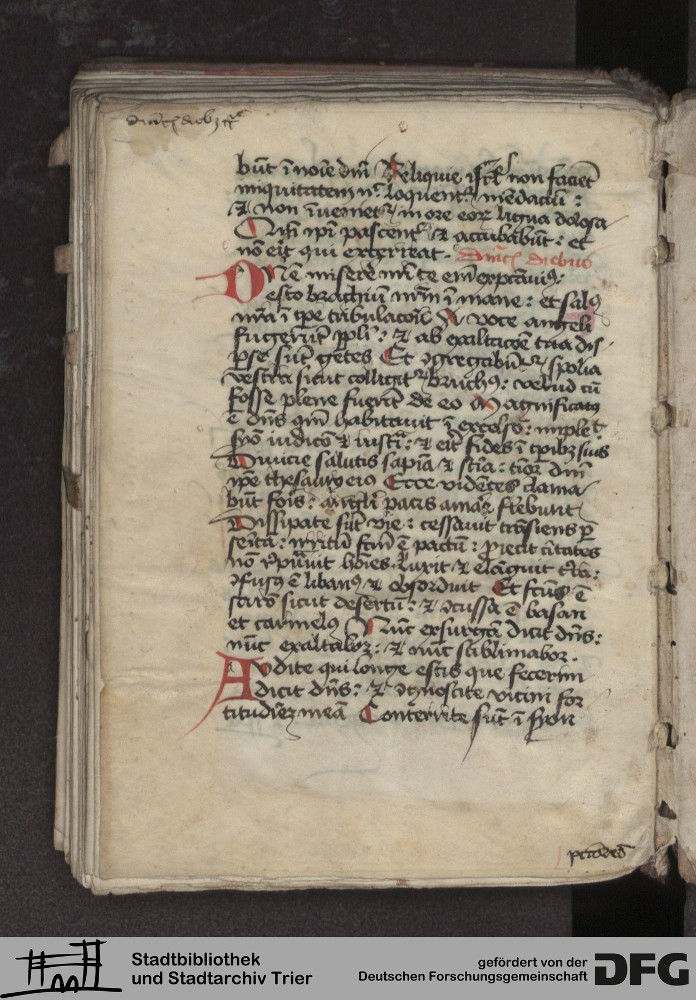 būt ī noīe dnī Reliquie isrl' non faciēt
iniquitatem nc̄ loquent᷑ mēdaciū :
⁊ non īueniet᷑ in ore eoꝝ ligua dolosa
Qm̄ ipī pascent᷑ ⁊ accubabūt : et
nō erit qui exterreat . diebus
Dn̄e miserē nrī te enī exptauim᷒ :
esto brachiū nrm̄ ī mane : et salus
nrā ī tpe tribulacōis A voce angeli
fugerūt ppli : ⁊ ab exaltacōe tua dis-
perse sūt gētes Et ꝯgregabūt᷑ spolia
vestra sicut colligit᷑ bruch᷒ : velud cū
fosse plene fuerīt de eo Magnificatus
ē dns qm̄ habitauit ī excelso : implevit
syō iudicō ⁊ iusti : ⁊ erit fides ī tpibꝫ suis
Diuicie salutis sapiā ⁊ scīa : timor dnī
ipe thesaur᷒ eius Ecce vidētes clama-
būt foris : angli pacis amar flebunt
Dissipate sūt vie : cessauit trāsiens per
semitā : irritū fcm̄ ē pactū : ꝓiecit ciutates
nō reputauit hoīes Luxit ⁊ elāguit trā :
ꝯfusus ē liban᷒ ⁊ obsorduit Et fcus ē
saron sicut desertū : ⁊ ꝯcussa ē basan
et carmel᷒ Nūc exsurgā dicit dns :
nūc exaltaboꝛ : ⁊ nūc sublimabor .
Audite qui longe estis que fecerim
dicit dns : ⁊ ꝯgnoscite vicini for
titudinē meā Conterrite sūt ī syon
pctores
Stadtbibliothek
und Stadtarchiv Trier
gefördert von der
Deutschen Forschungsgemeinschaft
DFG